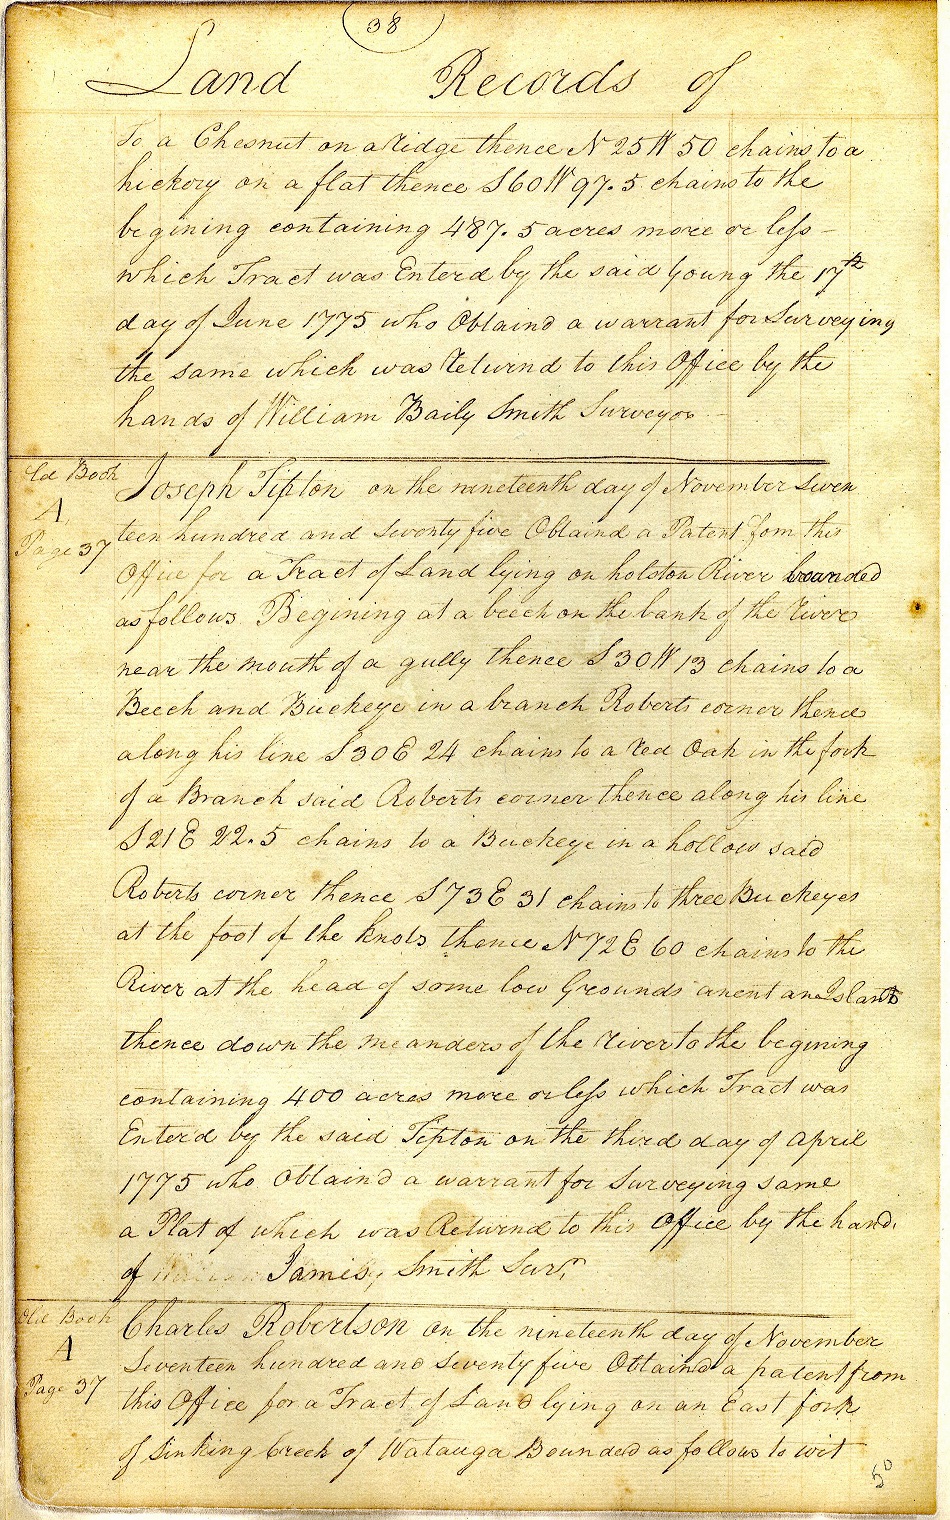 38
Land Records of
To a Chesnut on a ridge thence N 25 W 50 chains to a
hickory on a flat thence S 60 W 97.5 chains to the
begining containing 487.5 acres more or less –
which Tract was Enterd by the said Young the 17th
day of June 1775 who Obtaind a warrant for Surveying
the same which was returnd to this Office by the
hands of William Baily Smith Surveyor –
Old Book
A
Page 37
Joseph Tipton on the nineteenth day of November Seven
teen hundred and seventy five Obtaind a Patent from this
Office for a Tract of Land lying on holston River bounded
as follows. Begining at a beech on the bank of the river
near the mouth of a gully thence S 30 W 13 chains to a
Beech and Buckeye in a branch Roberts corner thence
along his line S 30 E 24 chains to a red Oak in the fork
of a Branch said Roberts corner thence along his line
S 21 E 22.5 chains to a Buckeye in a hollow said
Roberts corner thence S 73 E 31 chains to three Buckeyes
at the foot of the knobs thence N 72 E 60 chains to the
River at the head of some low Grounds anent an Island
thence down the meanders of the river to the begining
containing 400 acres more or less which Tract was
Enterd by the said Tipton on the third day of April
1775 who Obtaind a warrant for Surveying same
a Plat of which was Returnd to this Office by the hands
of James Smith Surr
Old Book
A
Page 37
Charles Robertson on the nineteenth day of November
Seventeen hundred and Seventy five Obtaind a patent from
this Office for a Tract of Land lying on an East fork
of Sinking Creek of Watauga Bounded as follows to wit
50